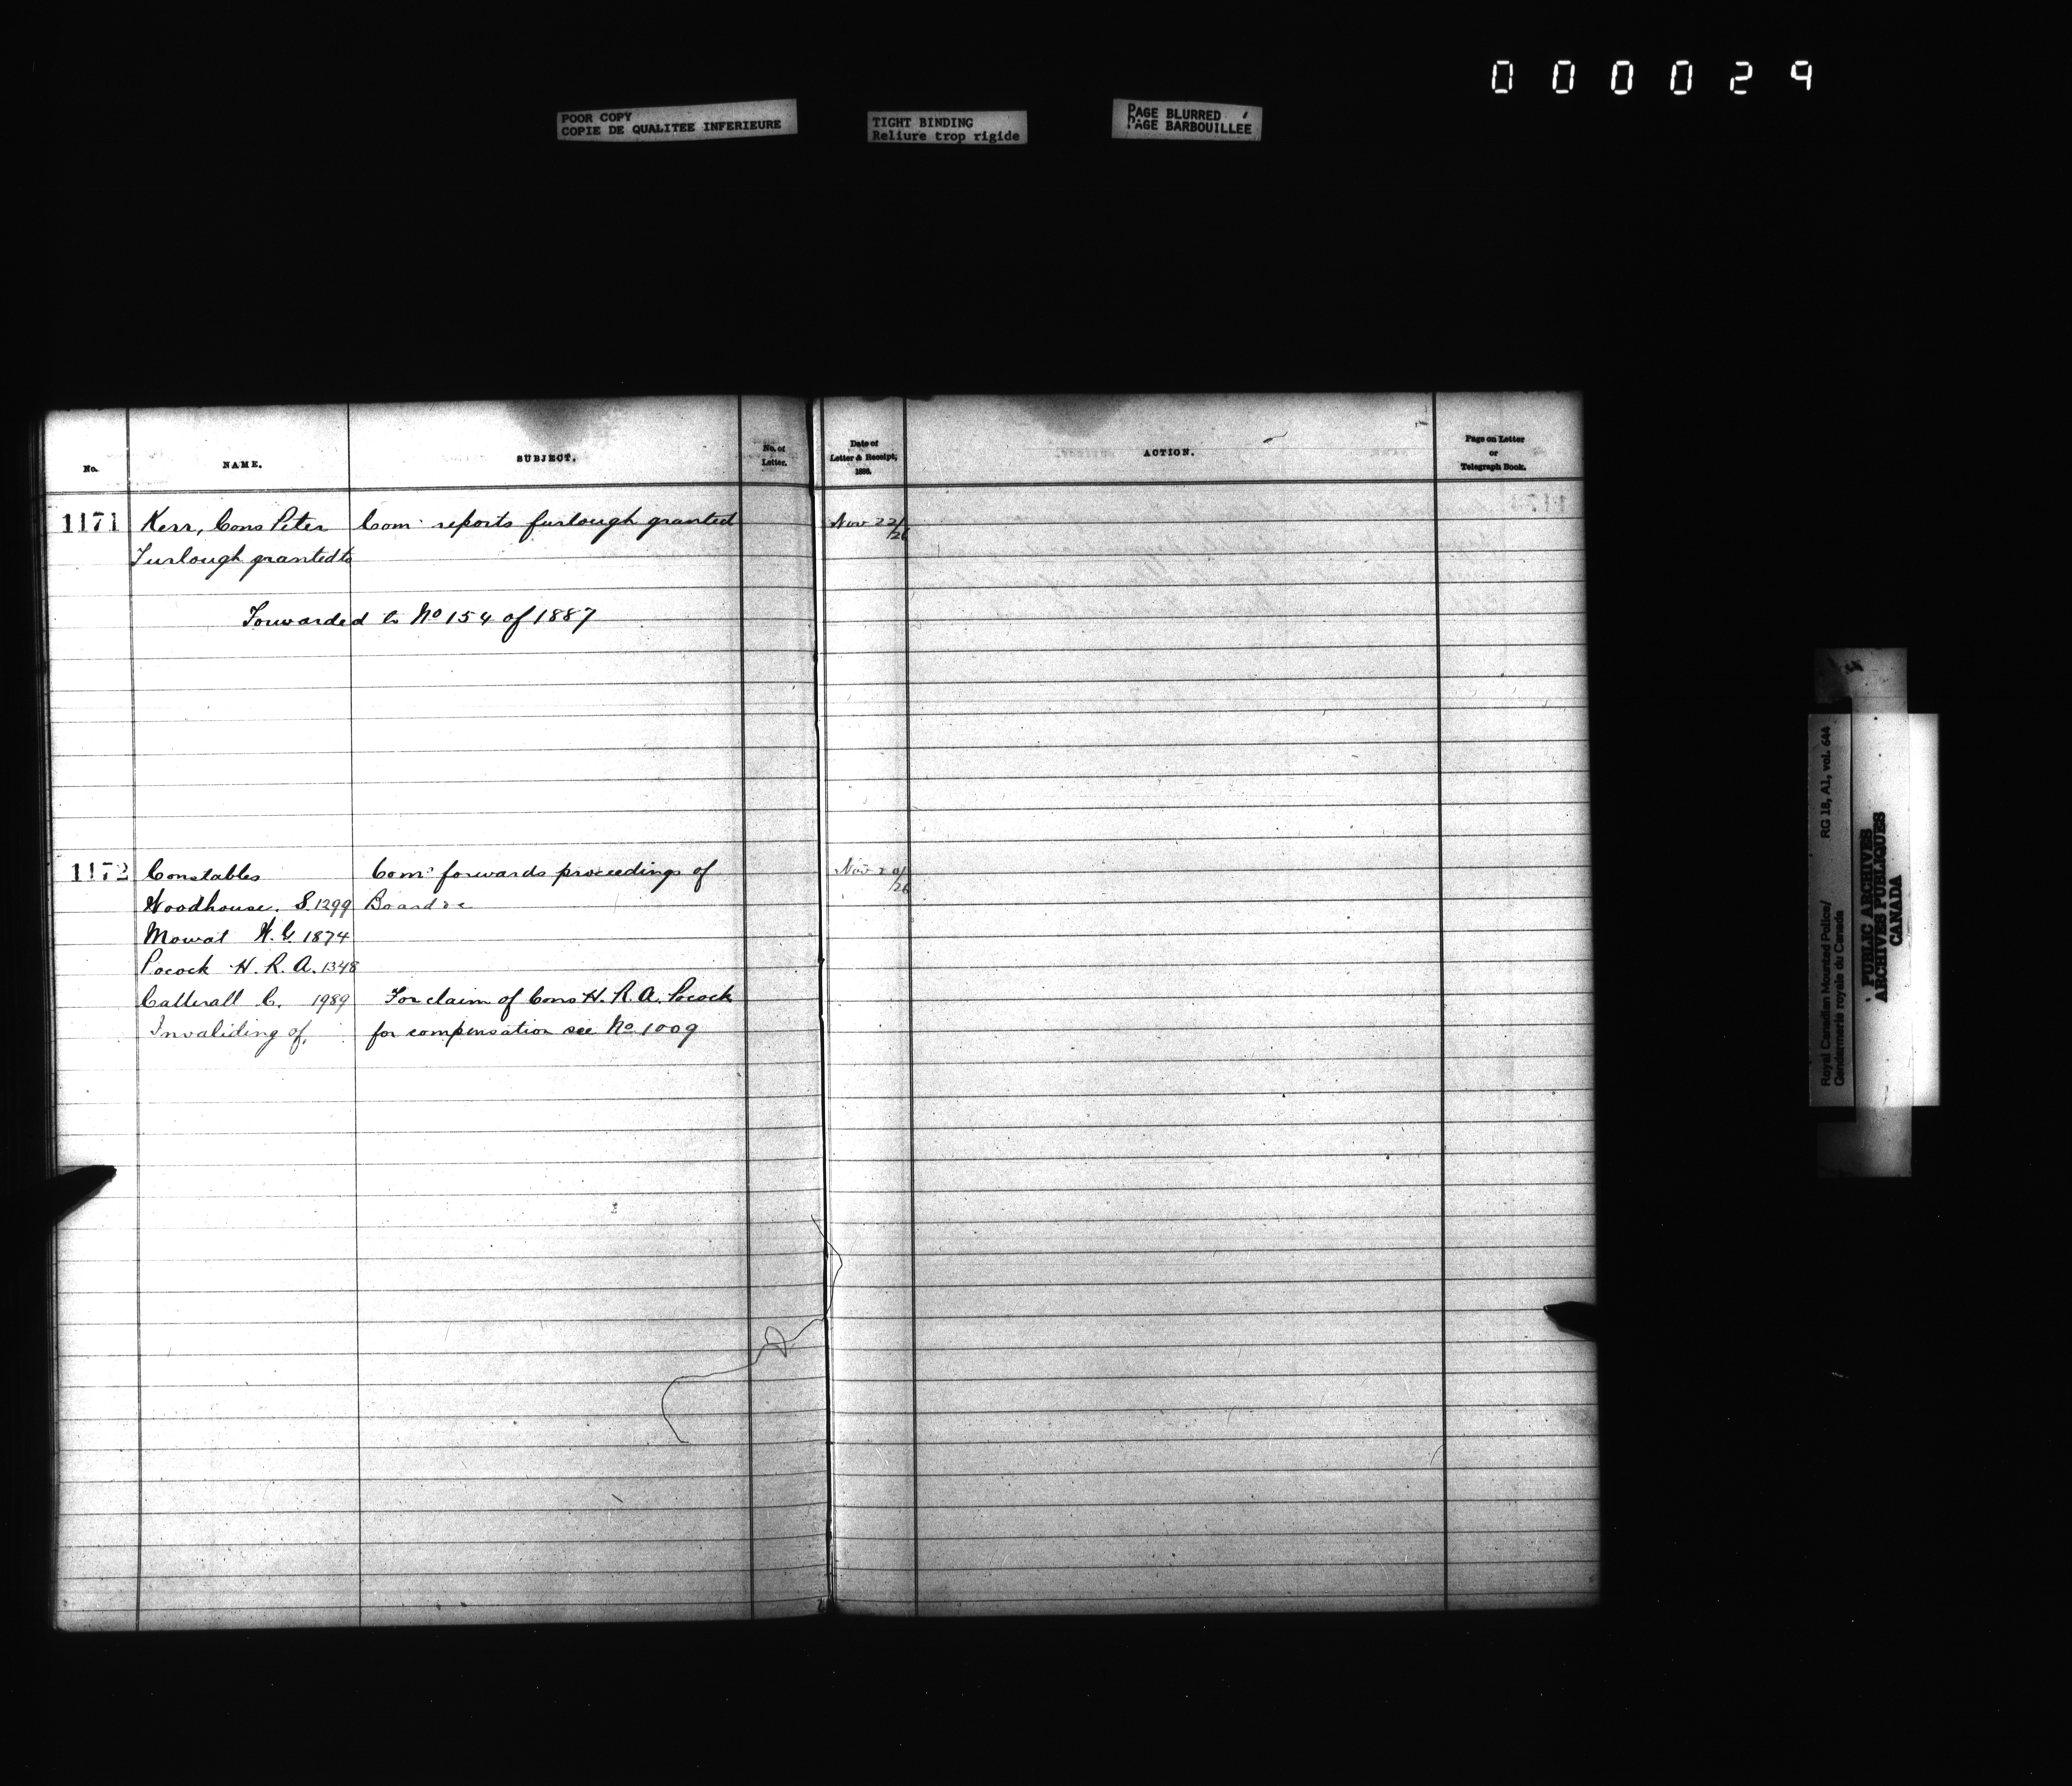 000029
POOR COPY
COPIE DE QUALITEE INFERIEURE
TIGHT BINDING
Reliure trop rigide
PAGE BLURRED
PAGE BARBOUILLEE
No.
NAME.
SUBJECT.
No. of
Letter.
Date of
Letter & Receipt,
1886.
ACTION.
Page on Letter
or
Telegraph Book.
1171 Kerr, Cons Peter Com. reports furlough granted Nov 22/26
Furlough granted to
Forwarded to No 154 of 1887
1172 Constables Comr forwards proceedings of Nov 20/26
Woodhouse. S. 1299 Board re
Mowat W. G. 1874
Pocock H. R. A. 1348
Catterall C. 1989 For claim of Cons H. R. A. Pocock
Invaliding of. for compensation see No 1009
Royal Canadian Mounted Police/
Gendarmerie royale du Canada
RG 18, A1, vol. 644
PUBLIC ARCHIVES
ARCHIVES PUBLIQUES
CANADA